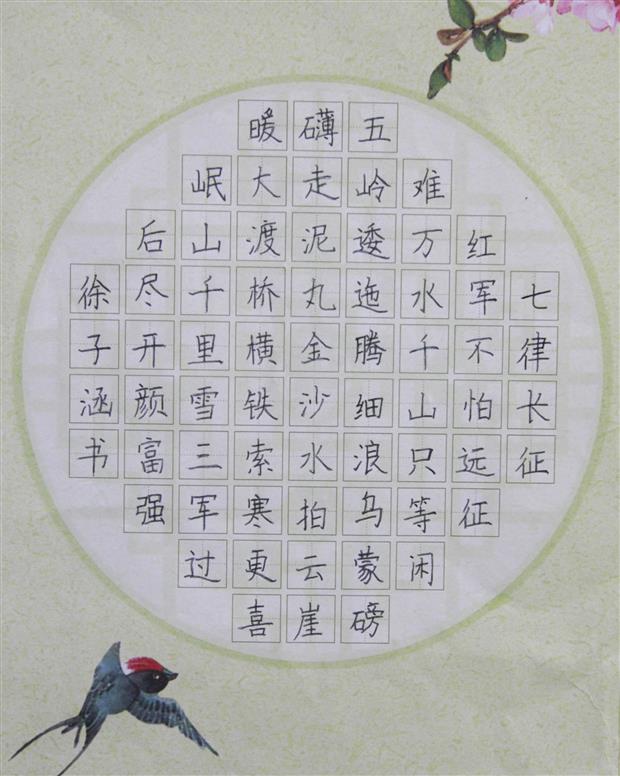 七律长征
红军不怕远征
难万水千山只等闲
五岭逶迤腾细浪乌蒙磅
礴走泥丸金沙水拍云崖
暖大渡桥横铁索寒更喜
岷山千里雪三军过
后尽开颜富强
徐子涵书